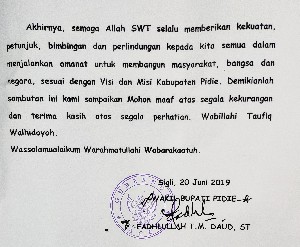 Akhirnya, semoga Allah SWT selalu memberikan kekuatan,
petunjuk, bimbingan dan perlindungan kepada kita semua dalam
menjalankan amanat untuk membangun masyarakat, bangsa dan
negara, sesuai dengan Visi dan Misi Kabupaten Pidie. Demikianlah
sambutan ini kami sampaikan Mohon maaf atas segala kekurangan
dan terima kasih atas segala perhatian. Wabillahi Taufiq
Walhidayah.
Wassalamualaikum Warahmatullahi Wabarakaatuh.
Sigli, 20 Juni 2019
WAKIL BUPATI PIDIE
FADHLULLAH T.M. DAUD, ST